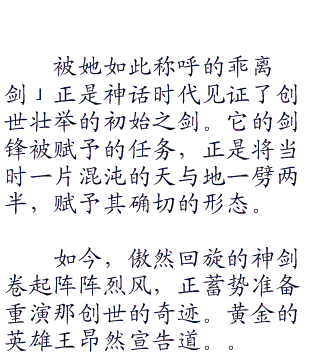 被她如此称呼的乖离
剑」正是神话时代见证了创
世壮举的初始之剑。它的剑
锋被赋予的任务，正是将当
时一片混沌的天与地一劈两
半，赋予其确切的形态。
如今，傲然回旋的神剑
卷起阵阵烈风，正蓄势准备
重演那创世的奇迹。黄金的
英雄王昂然宣告道。。